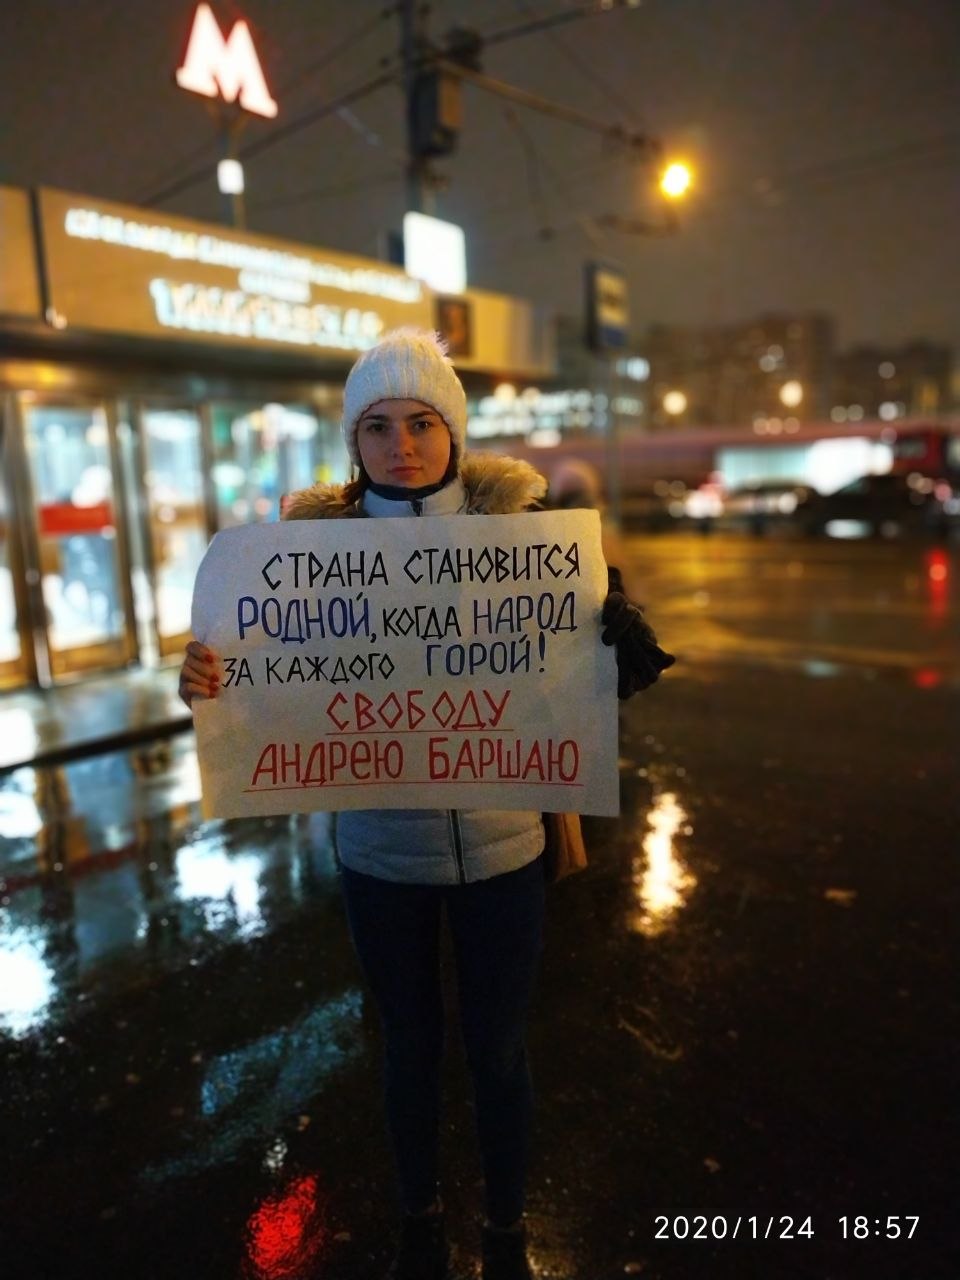 М
СТРАНА СТАНОВИТСЯ
РОДНОЙ, КОГДА НАРОД
ЗА КАЖДОГО ГОРОЙ!
СВОБОДУ
АНДРЕЮ БАРШАЮ
2020/1/24 18:57